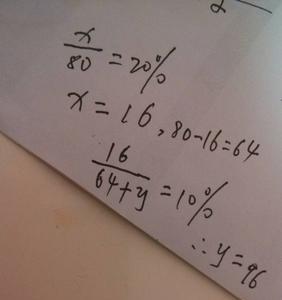 x/80 = 20%
x = 16, 80-16=64
16/(64+y) = 10%
∴ y = 96